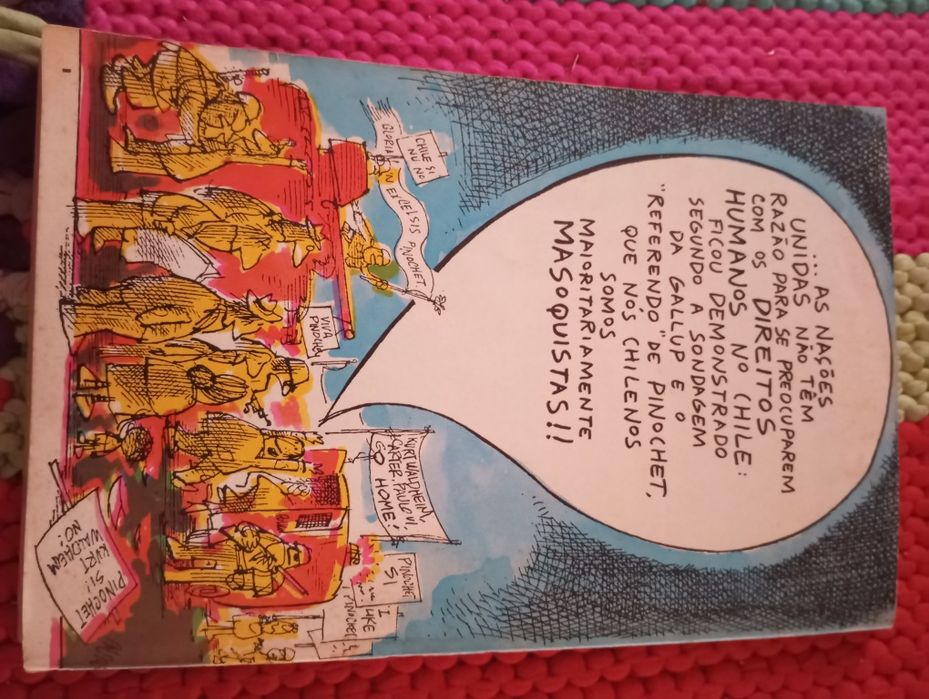 ... AS NAÇÕES
UNIDAS NÃO TÊM
RAZÃO PARA SE PREOCUPAREM
COM OS DIREITOS
HUMANOS NO CHILE:
FICOU DEMONSTRADO
SEGUNDO A SONDAGEM
DA GALLUP E O
"REFERENDO" DE PINOCHET,
QUE NÓS CHILENOS
SOMOS
MAIORITARIAMENTE
MASOQUISTAS!!
CHILE SI
NU NO
GLORIA IN EXCELSIS PINOCHET
VIVA
PINOCHET
KURT WALDHEIM,
CARTER, PAULO VI,
GO HOME!
PINOCHET
SI
I
LIKE
PINOCHET
PINOCHET
SI!
KURT
WALDHEIM
NO!